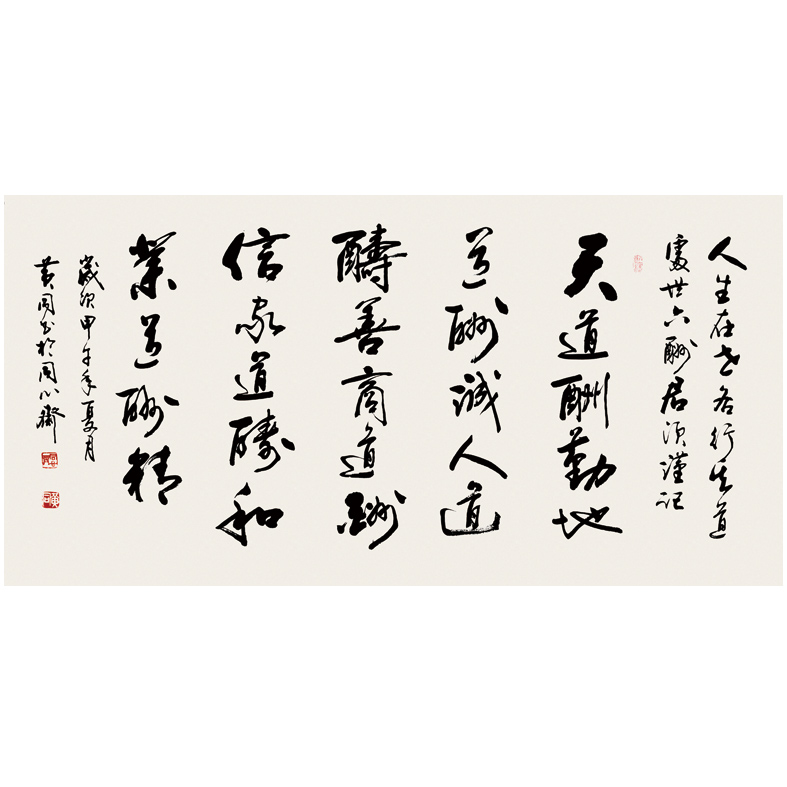 人生在世各行其道
處世六酬君須謹記
天道酬勤地
道酬誠人道
醻善商道酬
信家道醻和
業道酬精
歲次甲午年夏月
黄同书於同心齋